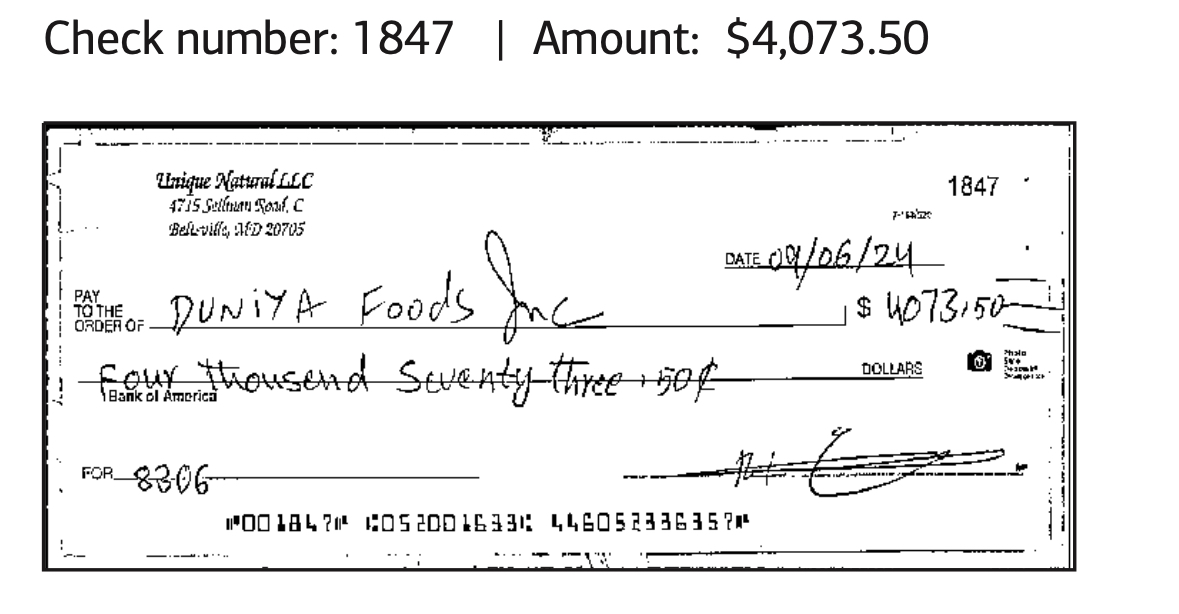 Check number: 1847 | Amount: $4,073.50
Unique Natural LLC
4715 Sellman Road, C
Beltsville, MD 20705
1847
DATE 09/06/24
PAY TO THE ORDER OF DUNiYA Foods Inc $ 4073.50
Four thousend Seventy three . 50¢ DOLLARS
Bank of America
FOR 8306
⑈001847⑈ ⑆052001633⑆ 446052336357⑈